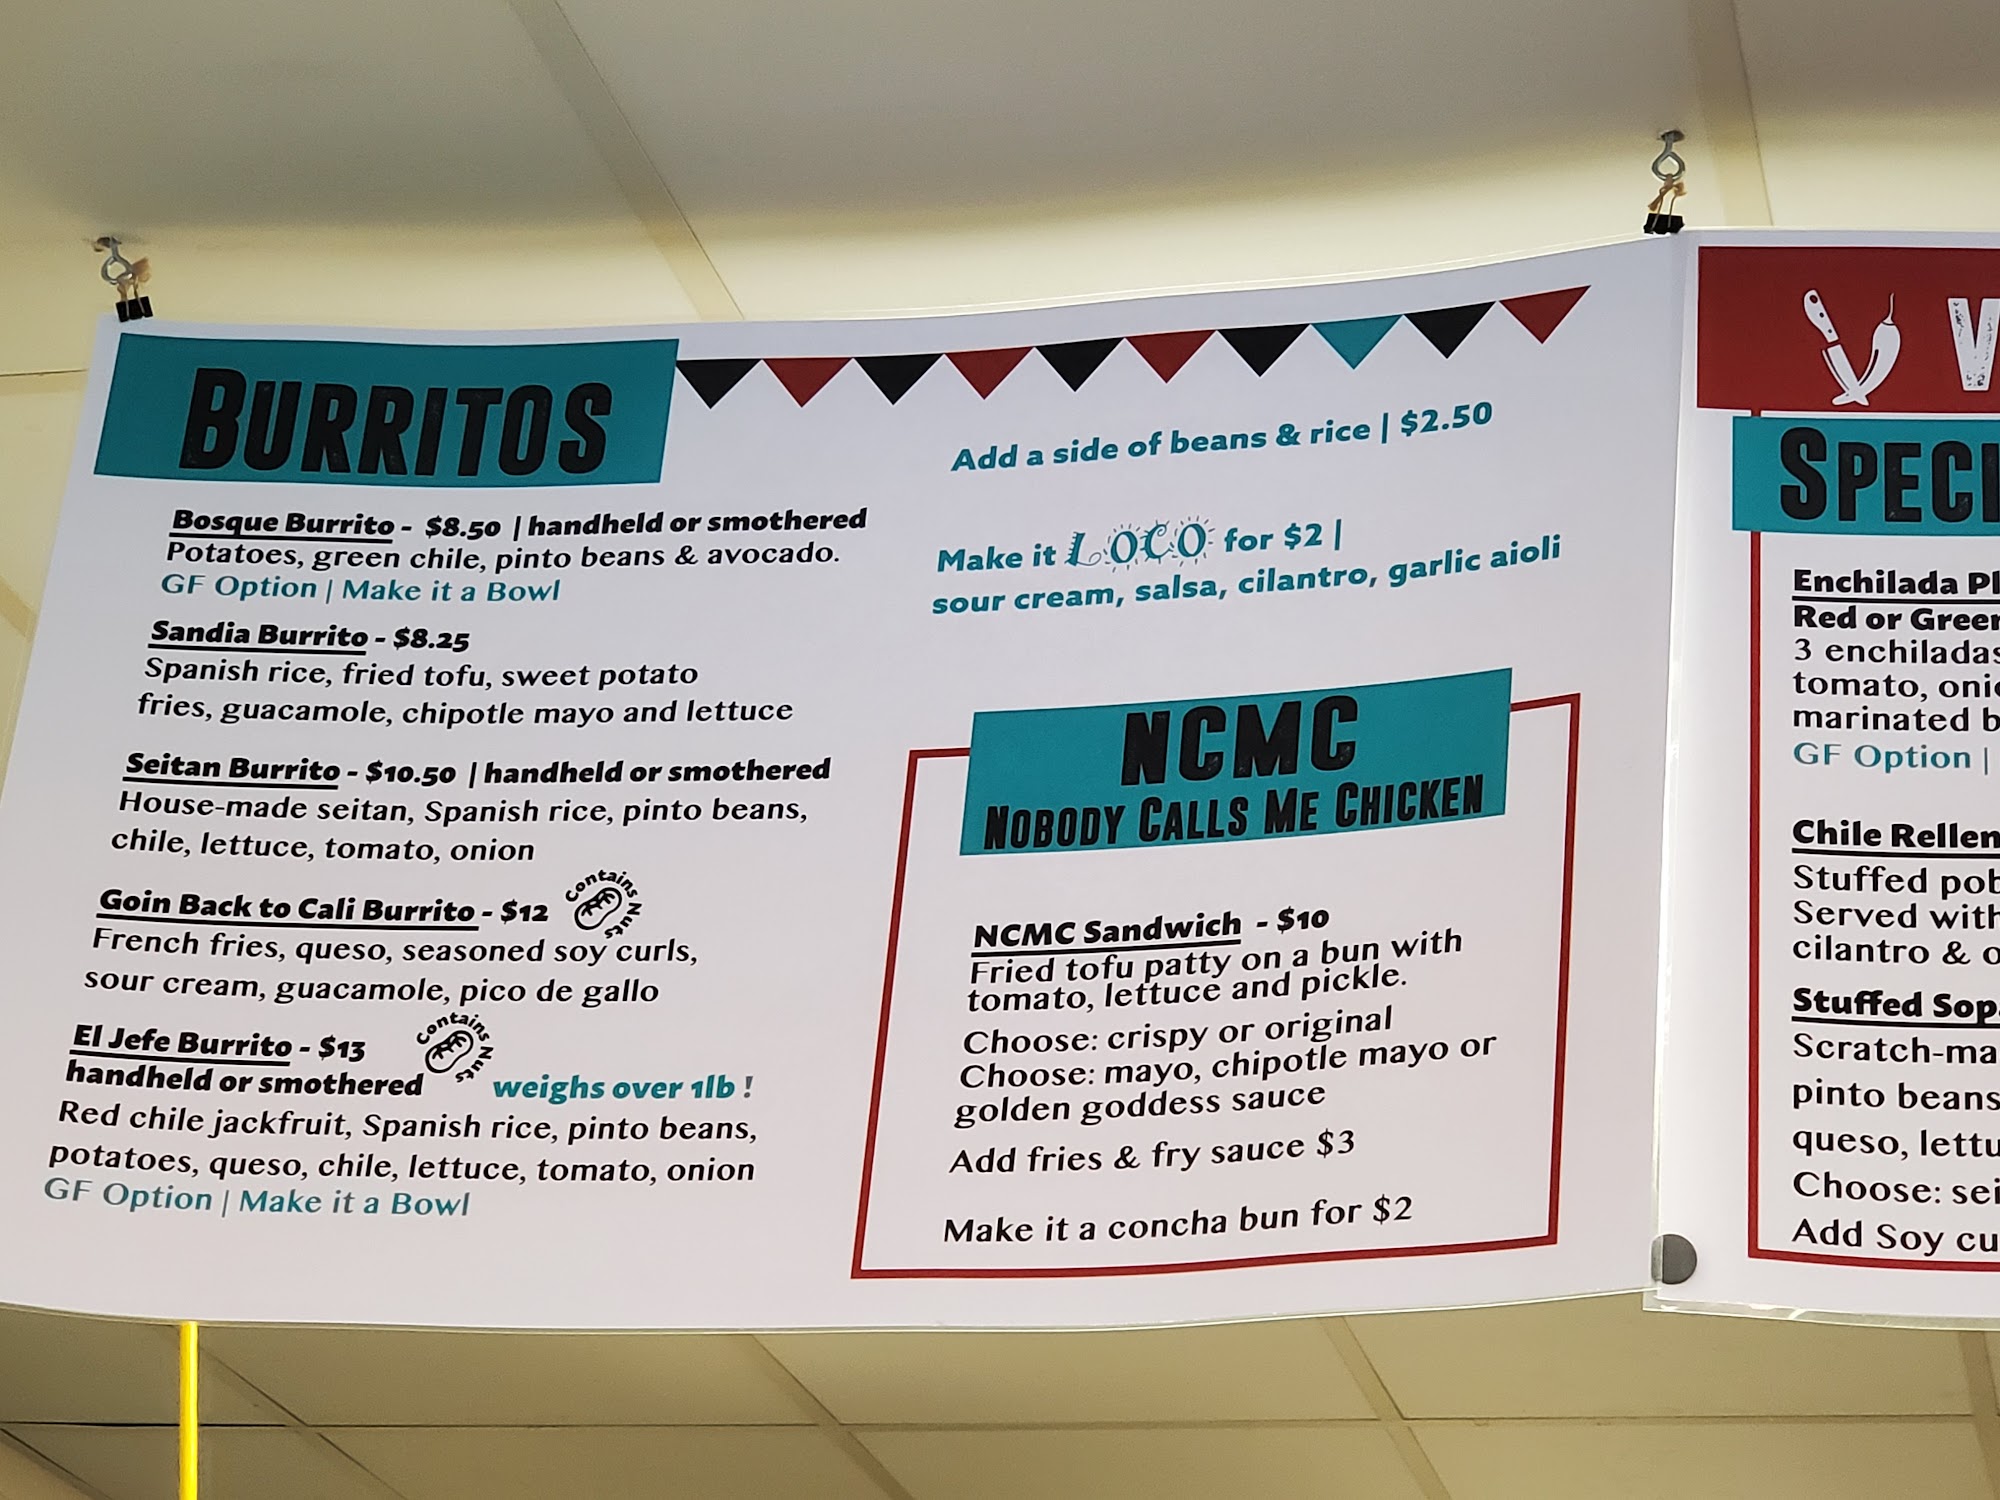 BURRITOS
Bosque Burrito - $8.50 | handheld or smothered
Potatoes, green chile, pinto beans & avocado.
GF Option | Make it a Bowl
Sandia Burrito - $8.25
Spanish rice, fried tofu, sweet potato
fries, guacamole, chipotle mayo and lettuce
Seitan Burrito - $10.50 | handheld or smothered
House-made seitan, Spanish rice, pinto beans,
chile, lettuce, tomato, onion
Goin Back to Cali Burrito - $12
Contains Nuts
French fries, queso, seasoned soy curls,
sour cream, guacamole, pico de gallo
El Jefe Burrito - $13
Contains Nuts
handheld or smothered
weighs over 1lb !
Red chile jackfruit, Spanish rice, pinto beans,
potatoes, queso, chile, lettuce, tomato, onion
GF Option | Make it a Bowl
Add a side of beans & rice | $2.50
Make it LOCO for $2 |
sour cream, salsa, cilantro, garlic aioli
NCMC
NOBODY CALLS ME CHICKEN
NCMC Sandwich - $10
Fried tofu patty on a bun with
tomato, lettuce and pickle.
Choose: crispy or original
Choose: mayo, chipotle mayo or
golden goddess sauce
Add fries & fry sauce $3
Make it a concha bun for $2
Enchilada
Red or Green
3 enchiladas
tomato,
marinated
GF Option |
Chile
Stuffed
Served with
cilantro &
Stuffed
pinto beans
queso,
Choose:
Add Soy